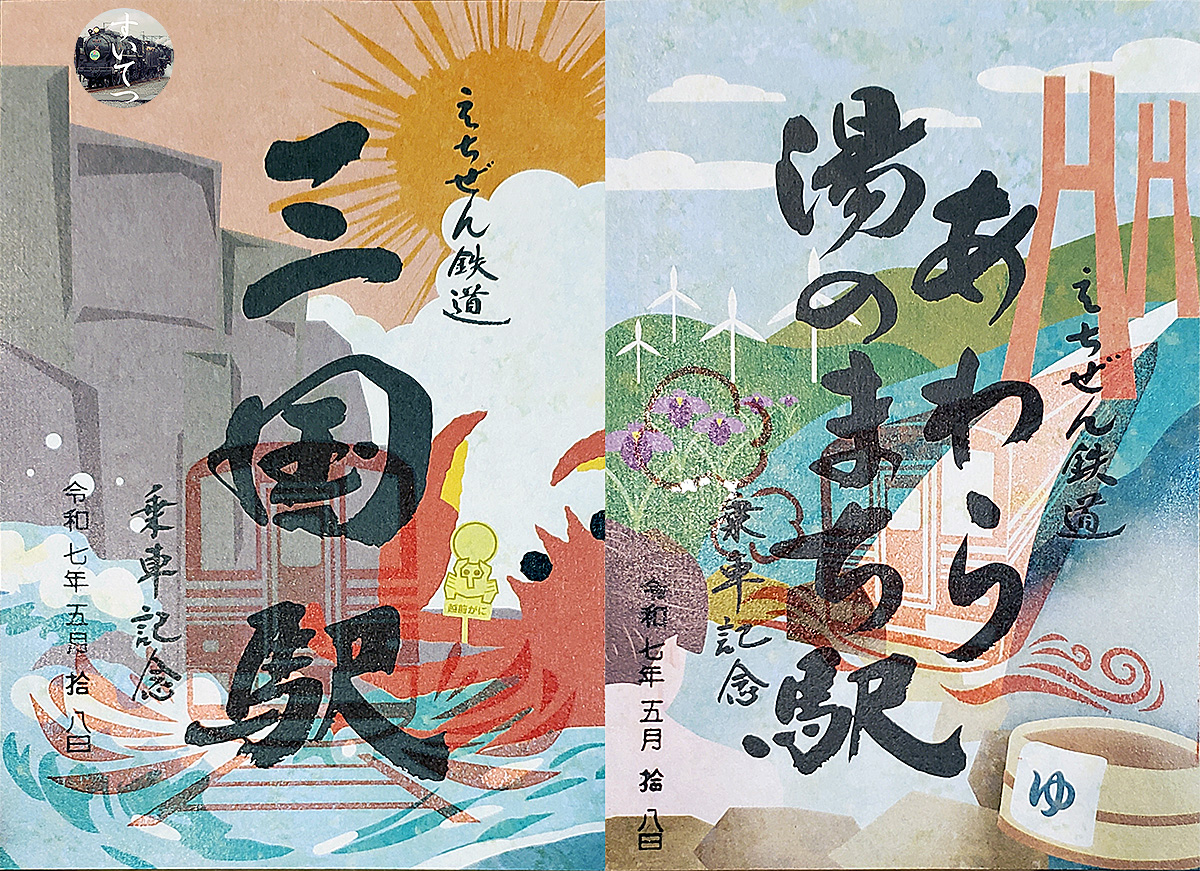 すいてつ
えちぜん鉄道
三国駅
乗車記念
令和七年五月拾八日
越前がに
えちぜん鉄道
あわら
湯のまち駅
乗車記念
令和七年五月拾八日
ゆ